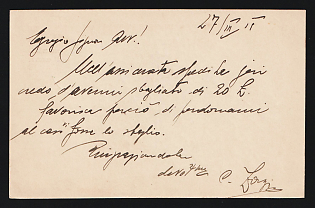 27/III 15
Egregio Signor Avv!
Nell'assicurata speditale ieri
credo d'avermi sbagliato di 20 L.
favorisca perciò di perdonarmi
al caso fosse lo sbaglio.
Ringraziandola
devo
C.